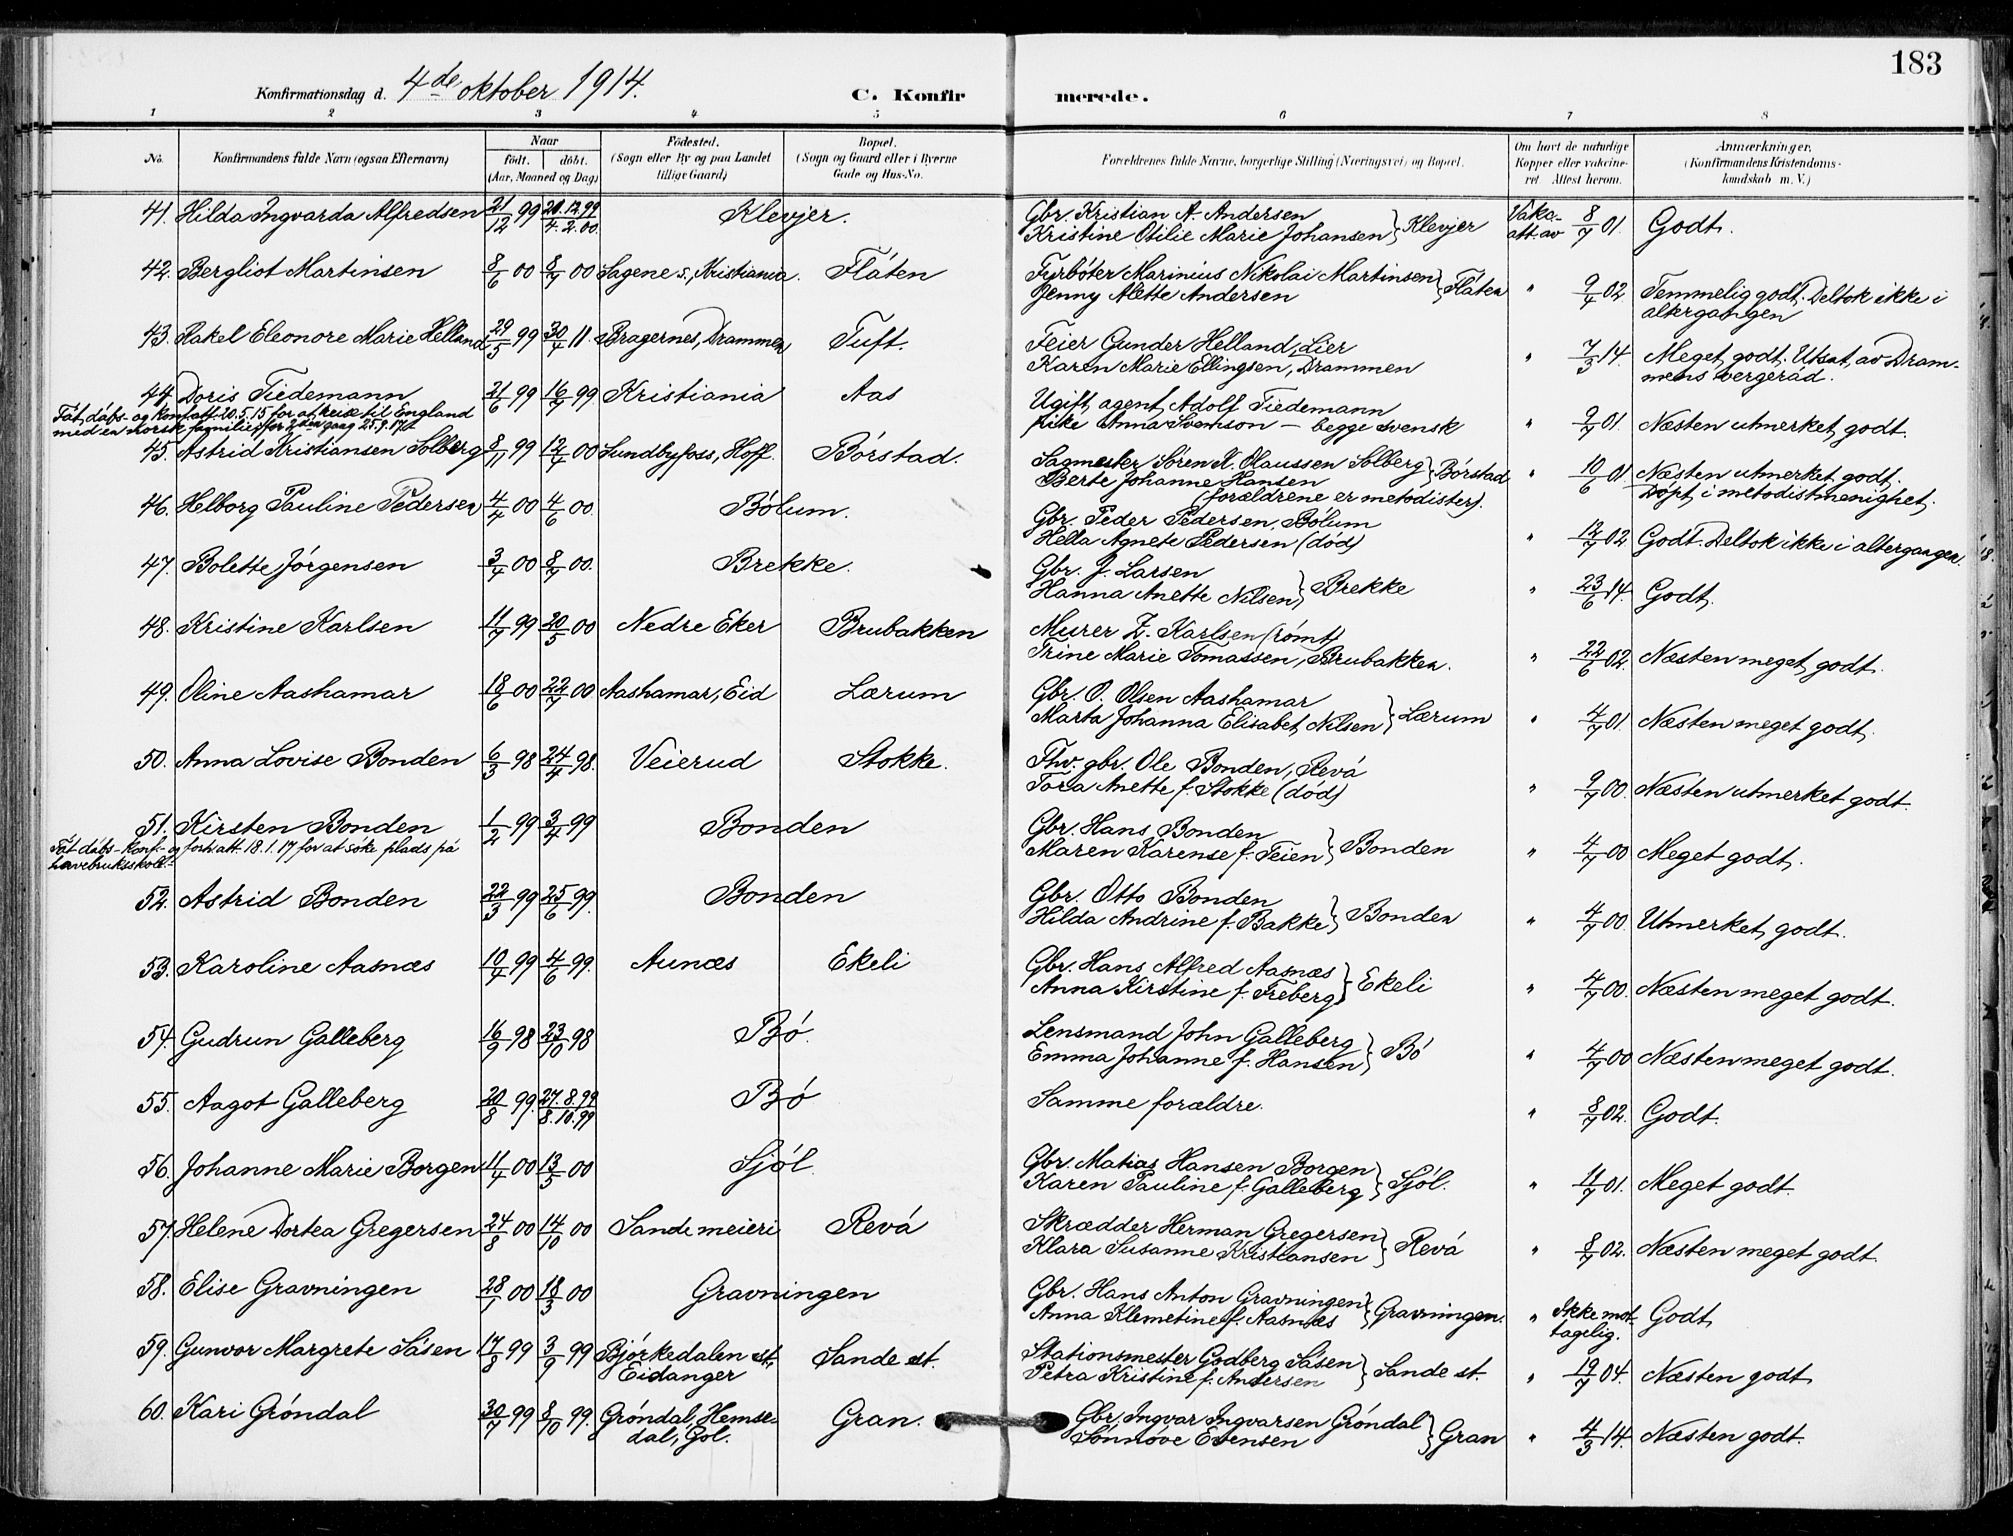 183
Konfirmationsdag d. 4de oktober 1914.
C. Konfirmerede.
1 2 3 4 5 6 7 8
No. Konfirmandens fulde Navn (ogsaa Efternavn) Naar födt. döbt. (Aar, Maaned og Dag) Födested. (Sogn eller By og paa Landet tillige Gaard) Bopæl. (Sogn og Gaard eller i Byerne Gade og Hus-No. Forældrenes fulde Navne, borgerlige Stilling (Næringsvei) og Bopæl. Om havt de naturlige Kopper eller vakcineret. Attest herom. Anmærkninger. (Konfirmandens Kristendomskundskab m. V.)
41. Hilda Ingvarda Alfredsen 21/12 99 26.12.99 4.2.00. Klevjer. Gbr. Kristian A. Andersen Vakc.- 8/7 01. Godt.
Kristine Otilie Marie Johansen } Klevjer att. av
42. Bergliot Martinsen 8/6 00 8/7 00 Sagene s., Kristiania. Flåten Fyrböter Marinius Nikolai Martinsen } Flåten " 9/4 02 Temmelig godt. Deltok ikke i
Jenny Alette Andersen altergangen
43. Rakel Eleonore Marie Helland 29/5 99 30/4 11. Bragernes, Drammen Tuft. Feier Gunder Helland, Lier " 7/3 14. Meget godt. Utsat av Dram-
Karen Marie Ellingsen, Drammen mens vergeråd.
44. Doris Tiedemann 21/6 99 16/9 99 Kristiania Aas Ugift agent Adolf Tiedemann " 9/7 01. Næsten utmerket godt.
Fåt dåbs- og konf.att. 20.5.15 for at reise til England
med en norsk familie; for 2den gang 25.9.17
pike Anna Svenson – begge svensk
45. Astrid Kristiansen Solberg 8/11 99 12/4 00 Sundbyfoss, Hoff. Börstad. Sagmester Sören K. Olaussen Solberg } Börstad " 10/6 01 Næsten utmerket godt.
Berte Johanne Hansen Döpt i metodistmenighet.
(forældrene er metodister).
46. Helborg Pauline Pedersen 4/4 00 4/6 00. Bölum. Gbr. Peder Pedersen, Bölum " 12/7 02 Godt. Deltok ikke i altergangen.
Hella Agnete Pedersen (död)
47. Bolette Jörgensen 3/4 00 8/7 00. Brekke. Gbr. J. Larsen " 23/6 14. Godt.
Hanna Anette Nilsen } Brekke
48. Kristine Karlsen 11/7 99 20/5 00 Nedre Eker Brubakken Murer Z. Karlsen (römt) " 22/6 02. Næsten meget godt.
Trine Marie Tomassen, Brubakken.
49. Oline Aashamar 18/6 00 22/7 00 Aashamar, Eid Lærum Gbr. O. Olsen Aashamar " 4/7 01. Næsten meget godt.
Marta Johanna Elisabet Nilsen } Lærum
50. Anna Lovise Bonden 6/3 98 24/4 98. Veierud Stokke. Fhv. gbr. Ole Bonden, Revå " 9/7 00. Næsten utmerket godt.
Tora Anette f. Stokke (död)
51. Kirsten Bonden 1/2 99 3/4 99 Bonden Gbr. Hans Bonden " 4/7 00 Meget godt.
Fåt dåbs- konf- og forh.att. 18.1.17 for at söke plads på
havebruksskole.
Maren Karense f. Feien } Bonden
52. Astrid Bonden 22/3 99 25/6 99. Bonden Gbr. Otto Bonden " 4/7 00. Utmerket godt.
Hilda Andrine f. Bakke } Bonden
53. Karoline Aasnæs 10/4 99 4/6 99. Aunæs Ekeli Gbr. Hans Alfred Aasnæs " 4/7 00. Næsten meget godt.
Anna Kirstine f. Freberg } Ekeli
54. Gudrun Galleberg 16/9 98 23/10 98 Bö. Lensmand John Galleberg " 4/7 00 Næsten meget godt.
Emma Johanne f. Hansen } Bö
55. Aagot Galleberg 20/8 99. 27.8.99 8.10.99 Bö Samme forældre. " 8/7 02. Godt.
56. Johanne Marie Borgen 11/4 00 13/5 00 Sjöl. Gbr. Matias Hansen Borgen " 11/7 01. Meget godt.
Karen Pauline f. Galleberg } Sjöl.
57. Helene Dortea Gregersen 24/8 00 14/10 00 Sande meieri Revå Skrædder Herman Gregersen " 8/7 02. Næsten meget godt.
Klara Susanne Kristiansen } Revå
58. Elise Gravningen 28/1 00 18/3 00 Gravningen Gbr. Hans Anton Gravningen " Ikke mot- Godt
Anna Klemetine f. Aasnæs } Gravningen. tagelig.
59. Gunvor Margrete Såsen 17/8 99 3/9 99 Björkedalen st., Sande st. Stationsmester Godberg Såsen " 19/7 04. Næsten godt
Eidanger Petra Kristine f. Andersen } Sande st.
60. Kari Gröndal 30/7 99 8/10 99. Gröndal, Hemse- Gran. Gbr. Ingvar Ingvarsen Gröndal " 4/3 14. Næsten godt.
dal, Gol. Sönnöve Evensen } Gran